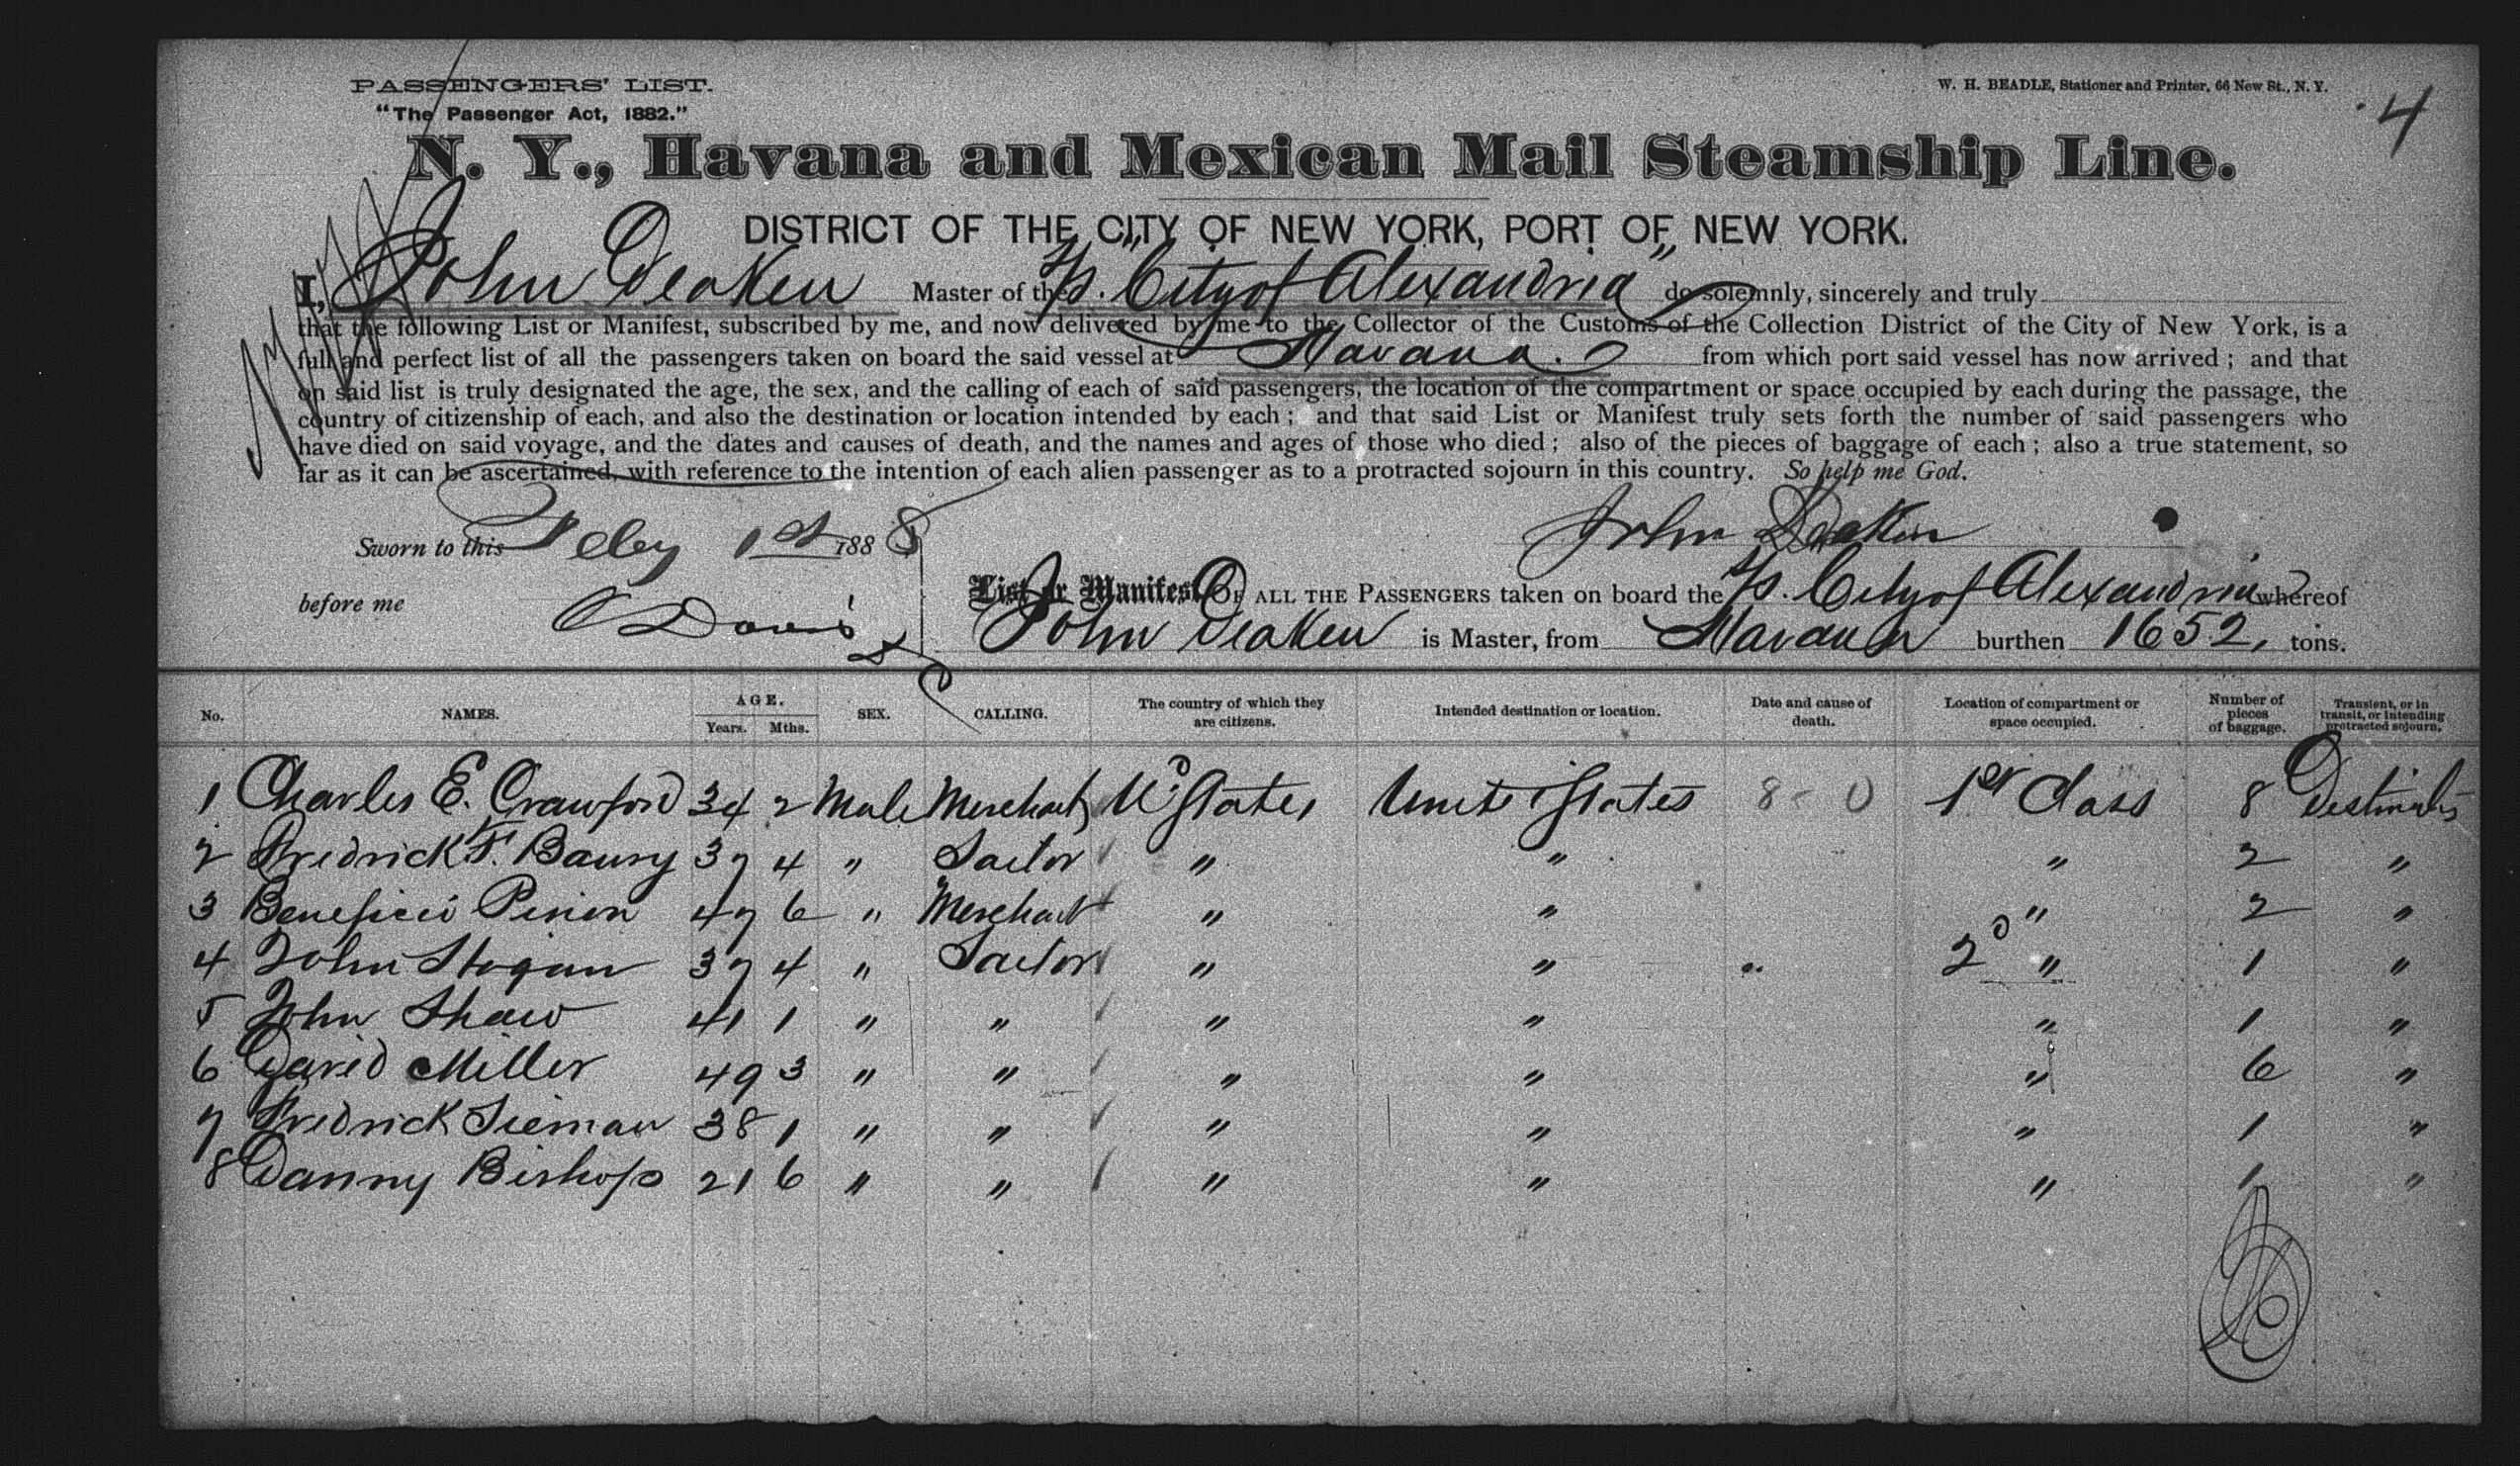 PASSENGERS' LIST.
"The Passenger Act, 1882."
W. H. BEADLE, Stationer and Printer, 66 New St., N. Y.
4
N. Y., Havana and Mexican Mail Steamship Line.
DISTRICT OF THE CITY OF NEW YORK, PORT OF NEW YORK.
I, John Deaken Master of the S/s. "City of Alexandria" do solemnly, sincerely and truly
that the following List or Manifest, subscribed by me, and now delivered by me to the Collector of the Customs of the Collection District of the City of New York, is a
full and perfect list of all the passengers taken on board the said vessel at Havana. from which port said vessel has now arrived; and that
on said list is truly designated the age, the sex, and the calling of each of said passengers, the location of the compartment or space occupied by each during the passage, the
country of citizenship of each, and also the destination or location intended by each; and that said List or Manifest truly sets forth the number of said passengers who
have died on said voyage, and the dates and causes of death, and the names and ages of those who died; also of the pieces of baggage of each; also a true statement, so
far as it can be ascertained, with reference to the intention of each alien passenger as to a protracted sojourn in this country. So help me God.
Sworn to this Feby 1st 1888 John Deaken
before me Davis
List or Manifest OF ALL THE PASSENGERS taken on board the S/s. City of Alexandria whereof
John Deaken is Master, from Havana burthen 1652, tons.
No. NAMES. AGE. Years. Mths. SEX. CALLING. The country of which they are citizens. Intended destination or location. Date and cause of death. Location of compartment or space occupied. Number of pieces of baggage. Transient, or in transit, or intending protracted sojourn.
1 Charles E. Crawford 34 2 Male Merchant U. States United States 8 - 0 1st Class 8 Destination
2 Fredrick F. Baury 37 4 " Sailor " " " 2 "
3 Beneficio Pinion 47 6 " Merchant " " " 2 "
4 John Hogan 37 4 " Sailor " " 2d " 1 "
5 John Shaw 41 1 " " " " " 1 "
6 David Miller 49 3 " " " " " 6 "
7 Fredrick Sieman 38 1 " " " " " 1 "
8 Danny Bishop 21 6 " " " " " 1 "